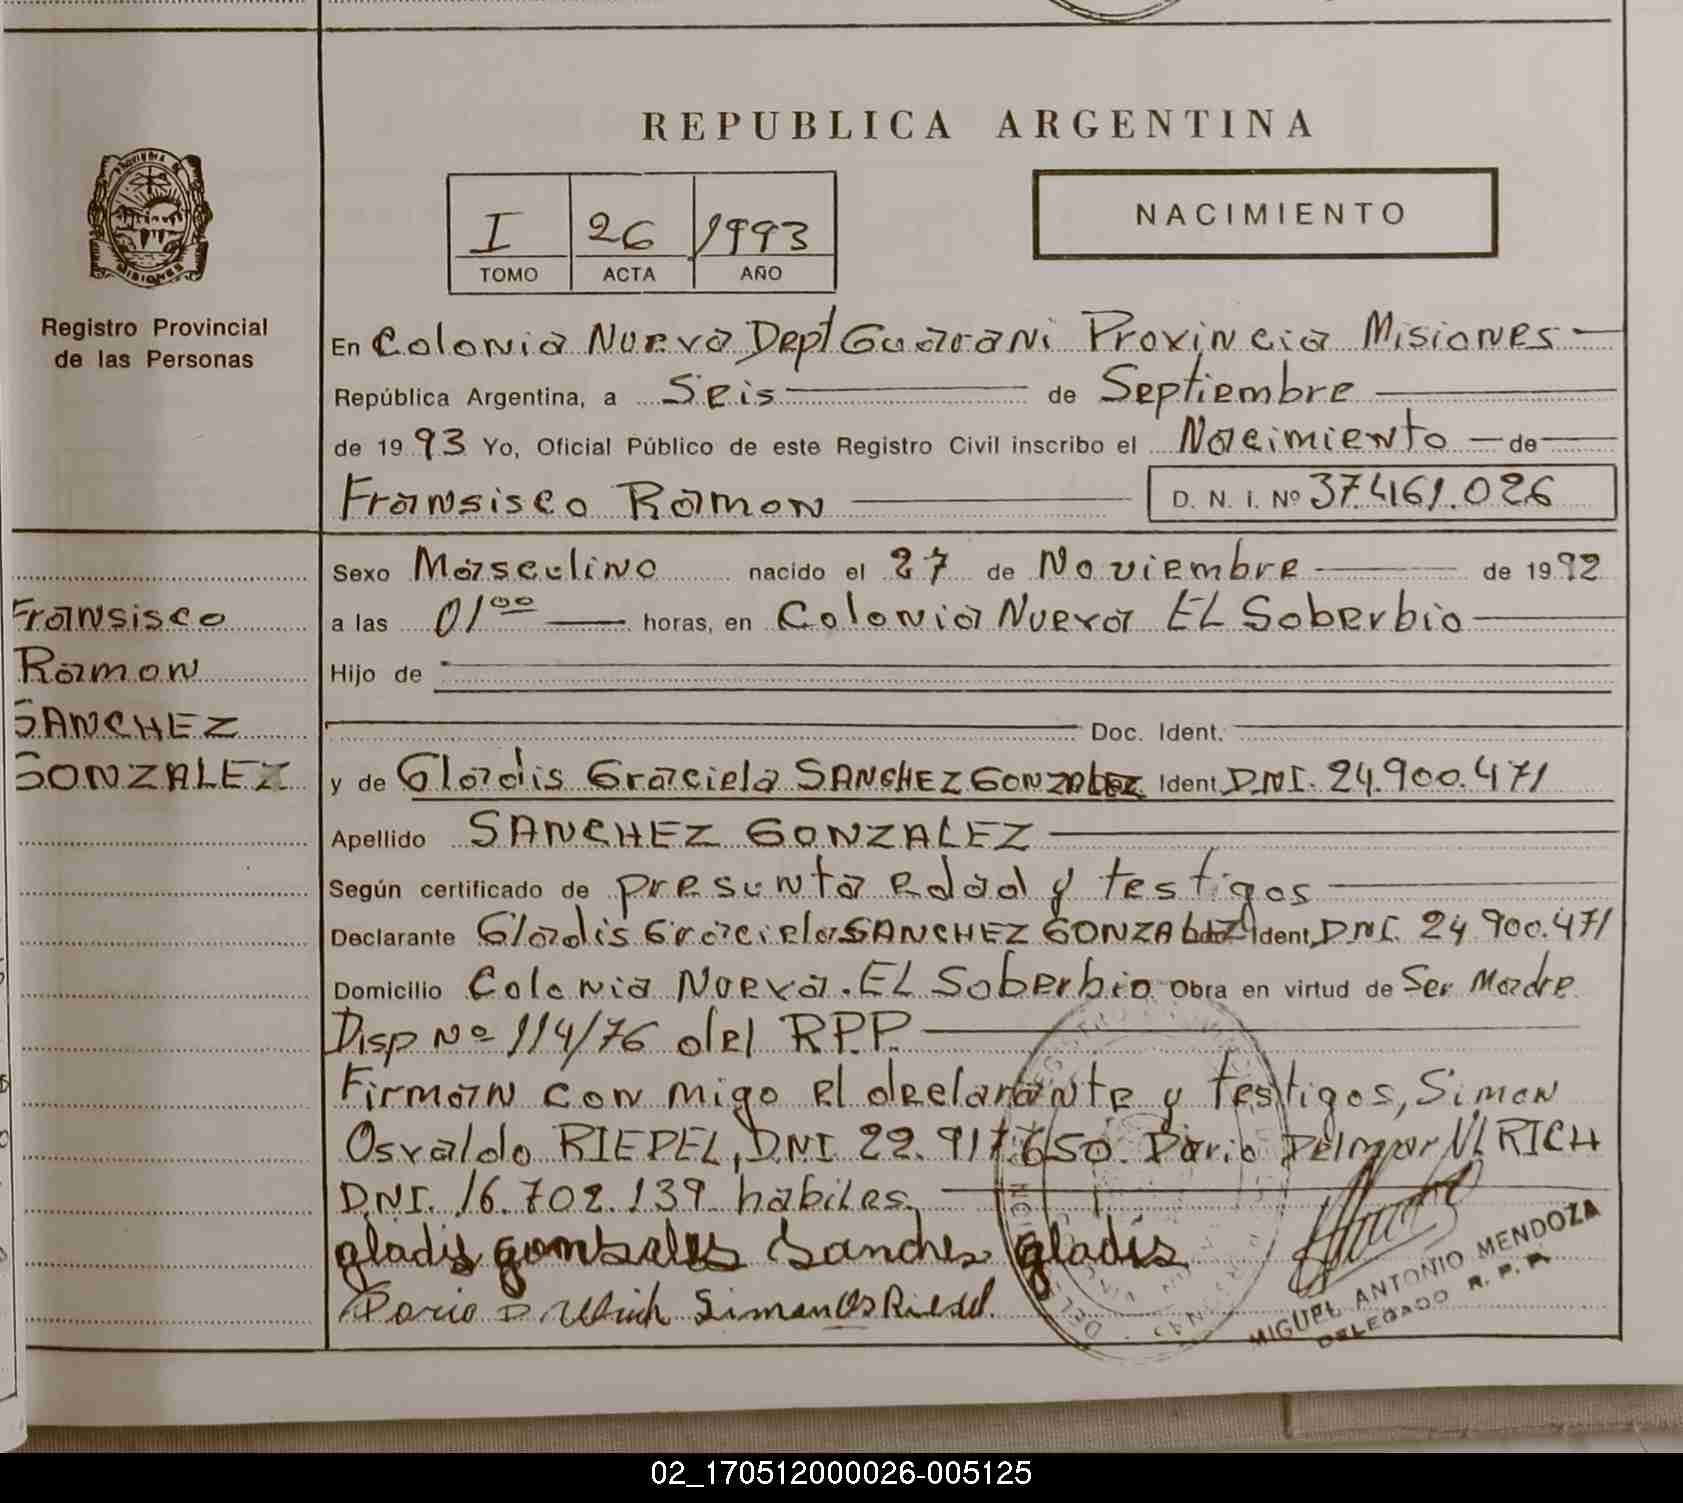 REPUBLICA ARGENTINA
I 26 1993
TOMO ACTA AÑO
NACIMIENTO
PROVINCIA DE
MISIONES
Registro Provincial
de las Personas
En Colonia Nueva Dept Guarani Provincia Misiones
República Argentina, a Seis de Septiembre
de 1993 Yo, Oficial Público de este Registro Civil inscribo el Nacimiento de
Fransisco Ramon D. N. I. Nº 37.461.026
Sexo Masculino nacido el 27 de Noviembre de 1992
a las 01 00 horas, en Colonia Nueva EL Soberbio
Hijo de
Doc. Ident.
y de Gladis Graciela SANCHEZ GONZALEZ Ident. DNI. 24.900.471
Apellido SANCHEZ GONZALEZ
Según certificado de presunta edad y testigos
Declarante Gladis Graciela SANCHEZ GONZALEZ Ident. DNI. 24.900.471
Domicilio Colonia Nueva. EL Soberbio Obra en virtud de Ser Madre
Disp Nº 114/76 del R.P.P.
Firman con migo el declarante y testigos, Simon
Osvaldo RIEDEL, DNI 22.917.650. Dario Delmar ULRICH
DNI. 16.702.139 habiles.
gladis gonsales Sanches gladis
Dario D. Ulrich Simon Os Riedel.
MIGUEL ANTONIO MENDOZA
DELEGADO R. P. P.
Fransisco
Ramon
SANCHEZ
GONZALEZ
02_170512000026-005125